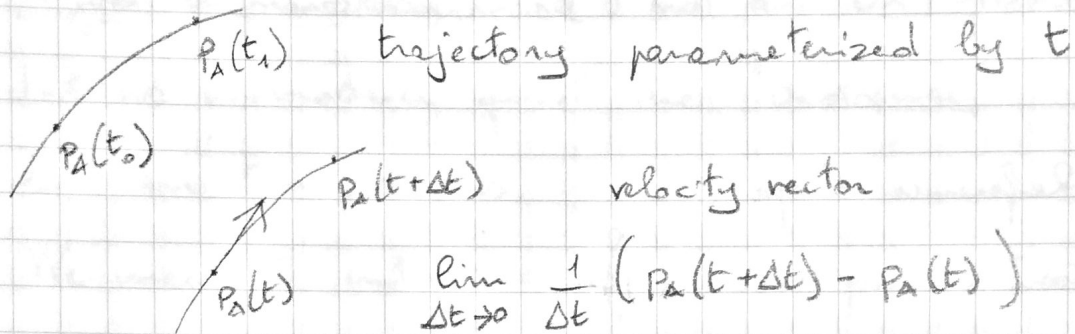 p_A(t_1) trajectory parameterized by t
p_A(t_0)
p_A(t+Δt) velocity vector
p_A(t) lim_{Δt→0} 1/Δt (p_A(t+Δt) - p_A(t))